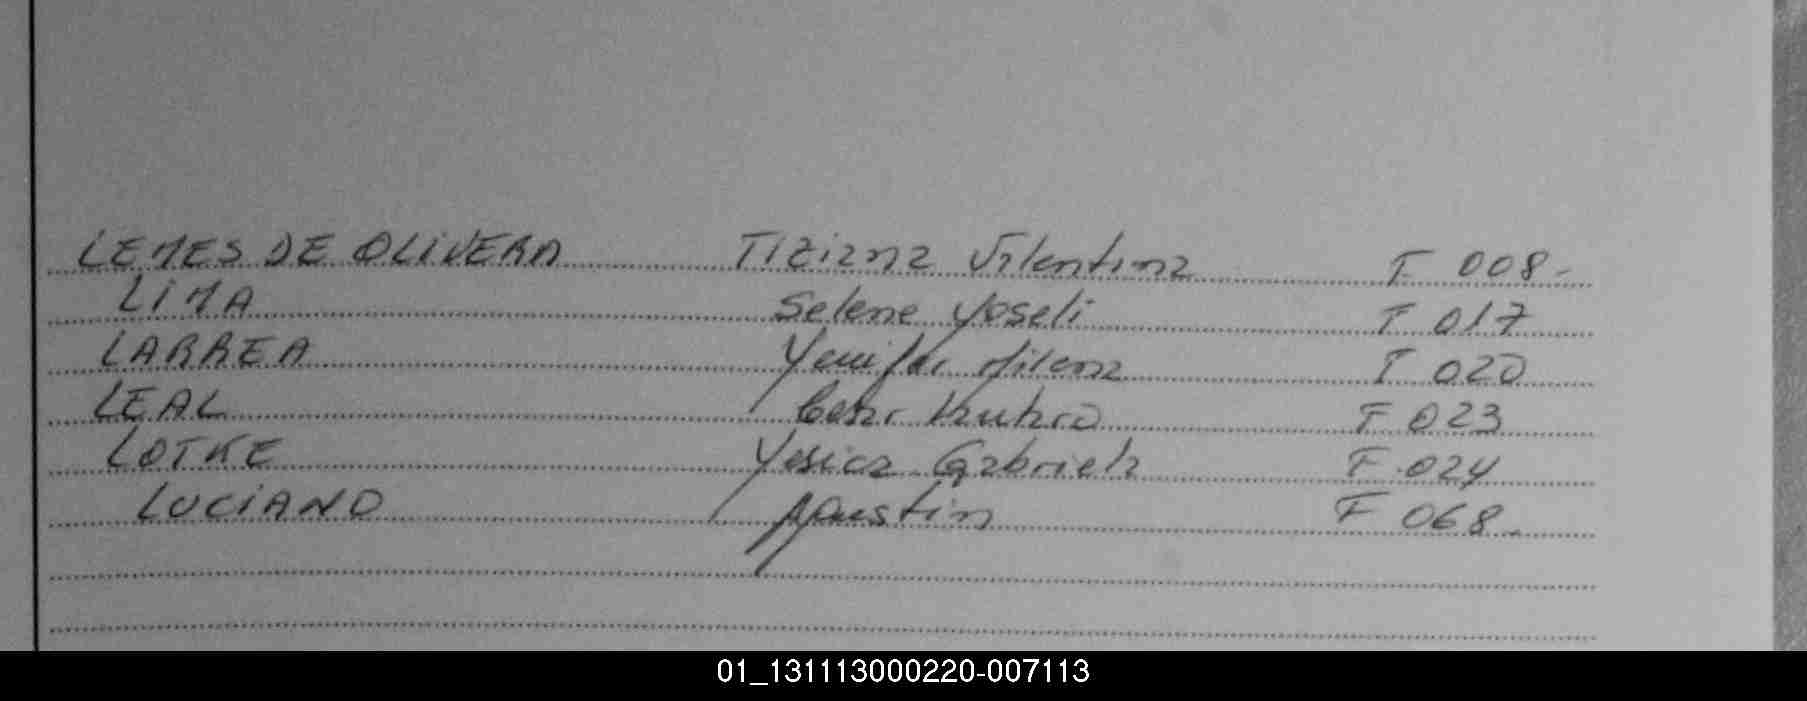 LEMES DE OLIVERA Tiziana Valentina F 008.
LIMA Selene Yoseli F 017
LARREA Yenifer Milena F 020
LEAL Cesar F 023
LOTKE Yesica Gabriela F 024
LUCIANO Agustin F 068.
01_131113000220-007113